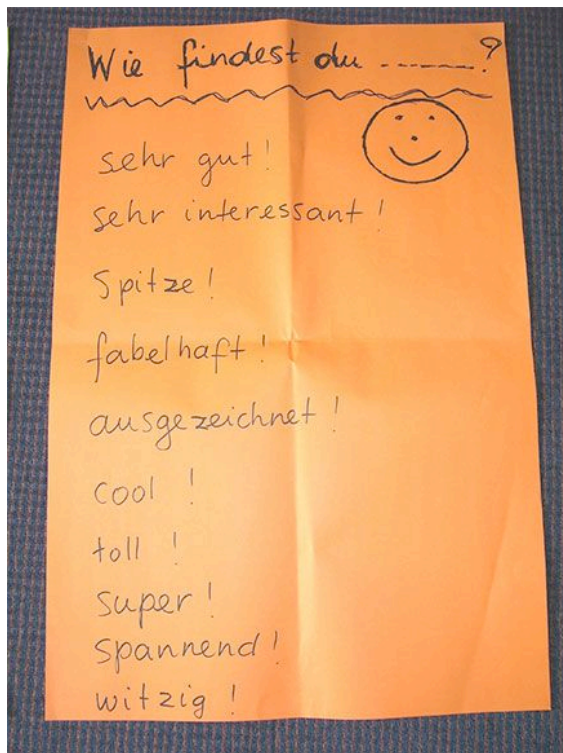 Wie findest du ------?
sehr gut!
sehr interessant!
Spitze!
fabelhaft!
ausgezeichnet!
cool!
toll!
super!
spannend!
witzig!